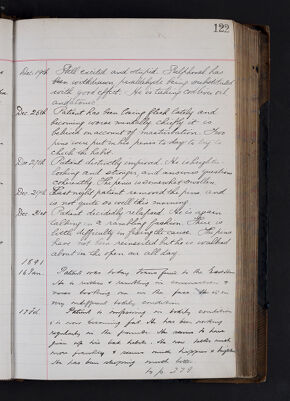 122
Dec. 19th Still excited and stupid. Sulphonal has
been withdrawn, paraldehyde being substituted
with good effect. He is taking cod liver oil
and tonic.
Dec. 26th Patient has been losing flesh lately and
becoming worse mentally chiefly it is
believed on account of masturbation. Two
pins were put in his penis to day to try to
check the habit.
Dec. 27th Patient distinctly improved. He is brighter
looking and stronger, and answers questions
coherently. The penis is somewhat swollen.
Dec. 29th Last night patient removed the pins and
is not quite so well this morning.
Dec. 31st Patient decidedly relapsed. He is again
talking in a rambling fashion. There is
little difficulty in finding the cause. The pins
have not been reinserted but he is walked
about in the open air all day.
1891
16 Jan. Patient was today transferred to the
He is restless & rambling in conversation &
in
very indifferent bodily condition
Patient is improving in bodily condition
& is now becoming fat. He has been working
regularly in the He seems to have
given up his bad habits. He now talks much
more & seems much happier & brighter
He has been sleeping much better
to p. 278